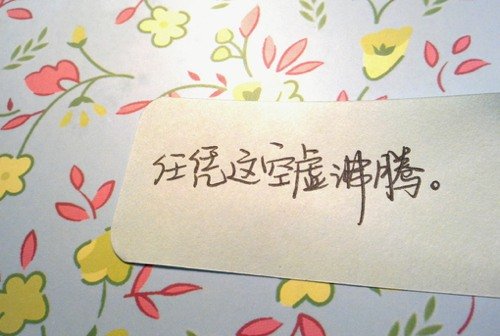 任凭这空虚沸腾。